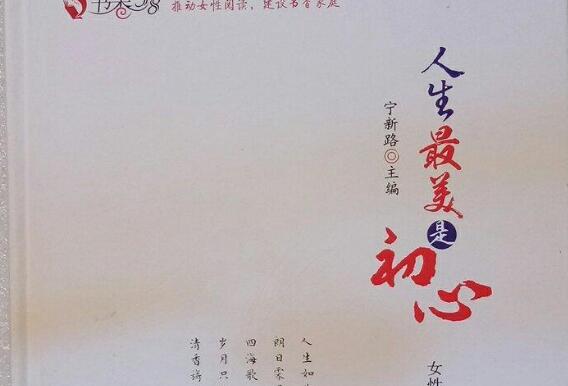 书香
推动女性阅读，建设书香家庭
人生最美是初心
宁新路◎主编
女性
人生如
明日
四海歌
岁月只
清香